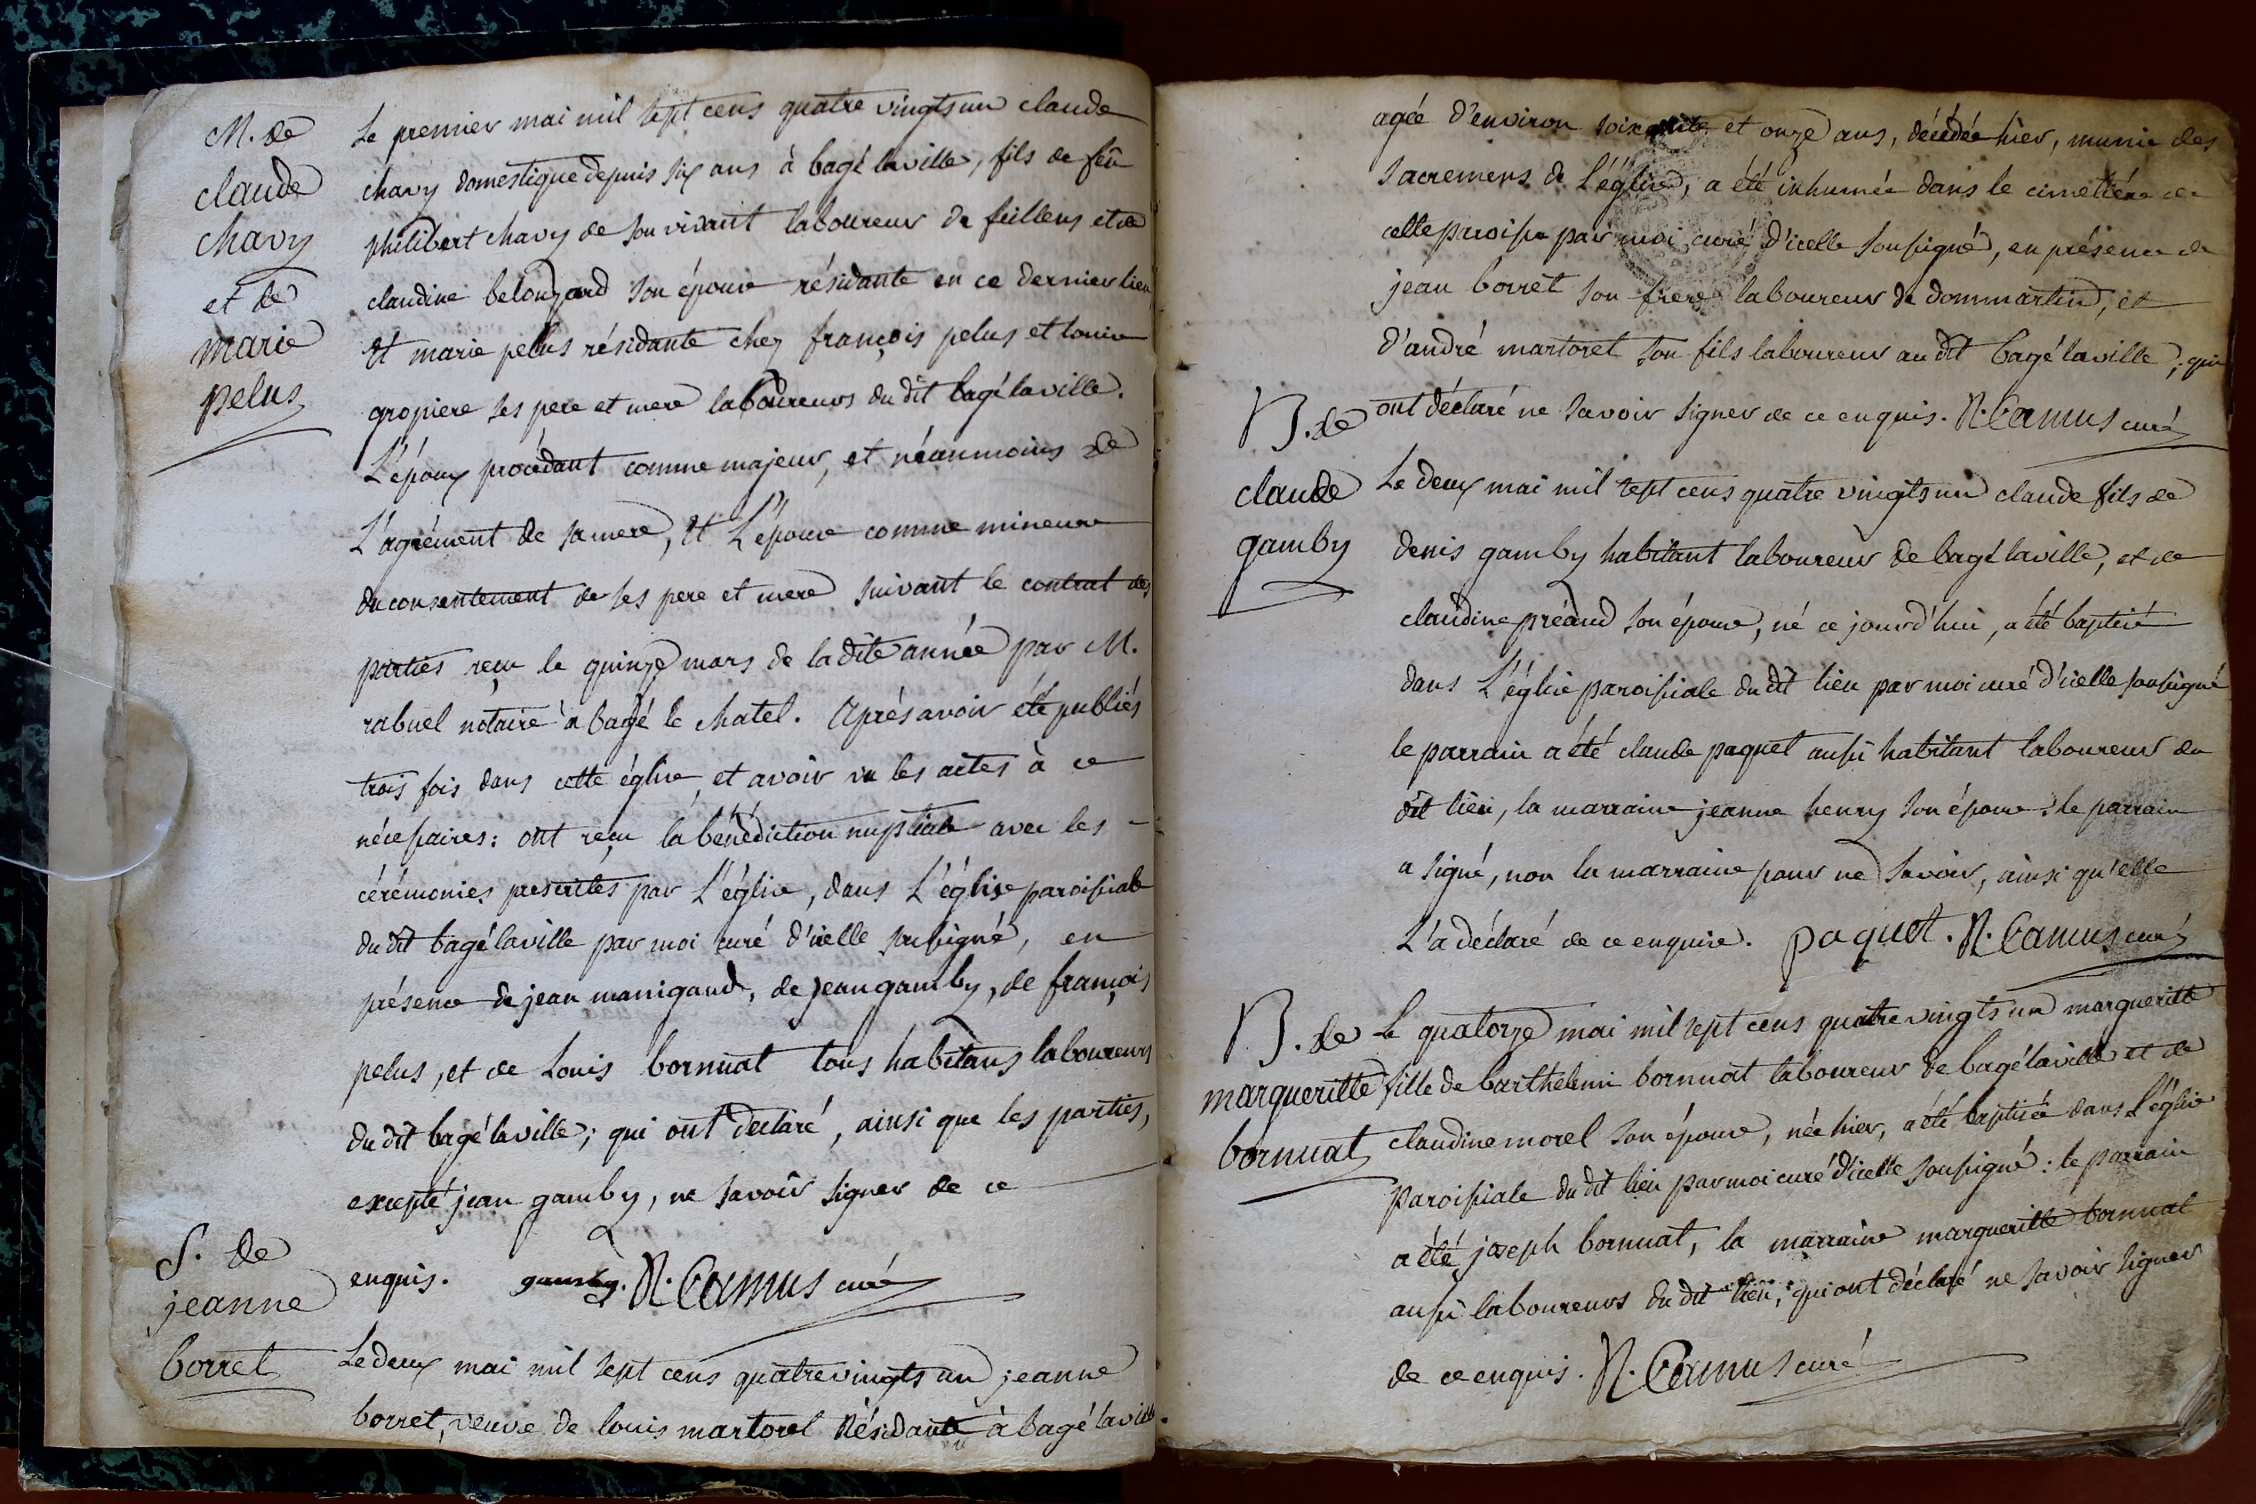 M. de
claude
chavy
et de
marie
pelus
Le premier mai mil sept cens quatre vingts un claude
chavy domestique depuis six ans à bagé laville, fils de feû
philibert chavy de son vivant laboureur de feillens et de
claudine belouzard son épouse résidante en ce dernier lieu
et marie pelus résidante chez françois pelus et louise
gropiere ses pere et mere laboureurs du dit bagé laville.
L'époux procédant comme majeur, et néanmoins de
L'agrément de sa mere, et L'épouse comme mineure
du consentement de ses pere et mere suivant le contrat des
parties reçu le quinze mars de la dite année par M.
rabuel notaire à bagé le chatel. Après avoir été publiés
trois fois dans cette église, et avoir vu les actes à ce
nécessaires: ont reçu la bénédiction nuptiale avec les -
cérémonies prescrites par L'église, dans L'église paroissiale
du dit bagé laville par moi curé d'icelle soussigné, en
présence de jean manigand, de jean gamby, de françois
pelus, et de Louis bornuat tous habitans laboureurs
du dit bagé laville; qui ont déclaré, ainsi que les parties,
excepté jean gamby, ne savoir signer de ce
enquis. gamby. N. Camus curé
S. de
jeanne
borret
Le deux mai mil sept cens quatre vingts un jeanne
borret, veuve de louis martoret Résidante à bagé laville.
agée d'environ soixante et onze ans, décédée hier, munie des
sacremens de L'église, a été inhumée dans le cimetiére de
cette paroisse par moi curé d'icelle soussigné, en présence de
jean borret son frere laboureur de dommartin, et
d'andré martoret son fils laboureur au dit bagé laville, qui
ont déclaré ne savoir signer de ce enquis. N. Camus curé
B. de
claude
gamby
Le deux mai mil sept cens quatre vingts un claude fils de
denis gamby habitant laboureur de bagé laville, et de
claudine préaud son épouse, né ce jourd'hui, a été baptisé
dans L'église paroissiale du dit lieu par moi curé d'icelle soussigné
le parrain a été claude paquet aussi habitant laboureur du
dit lieu, la marraine jeanne henry son épouse: le parrain
a signé, non la marraine pour ne savoir, ainsi qu'elle
L'a déclaré de ce enquise. paquet. N. Camus curé
B. de
marguerite
bornuat
Le quatorze mai mil sept cens quatre vingts un marguerite
fille de barthelemi bornuat laboureur de bagé laville et de
claudine morel son épouse, née hier, a été baptisée dans L'église
paroissiale du dit lieu par moi curé d'icelle soussigné: le parrain
a été joseph bornuat, la marraine marguerite bornuat
aussi laboureurs du dit lieu, qui ont déclaré ne savoir signer
de ce enquis. N. Camus curé